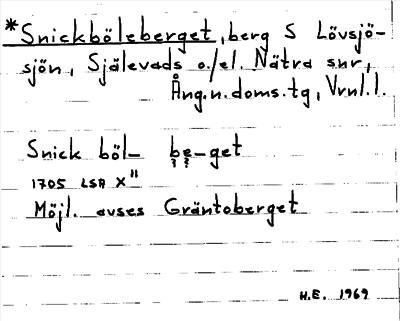 *Snickböleberget, berg S Lövsjö-
sjön, Själevads o./el. Nätra snr,
Ång.n.doms.tg, Vrnl.l.
Snick böl- be-get
1705 LSA X"
Möjl. avses Gräntoberget
H.E. 1969